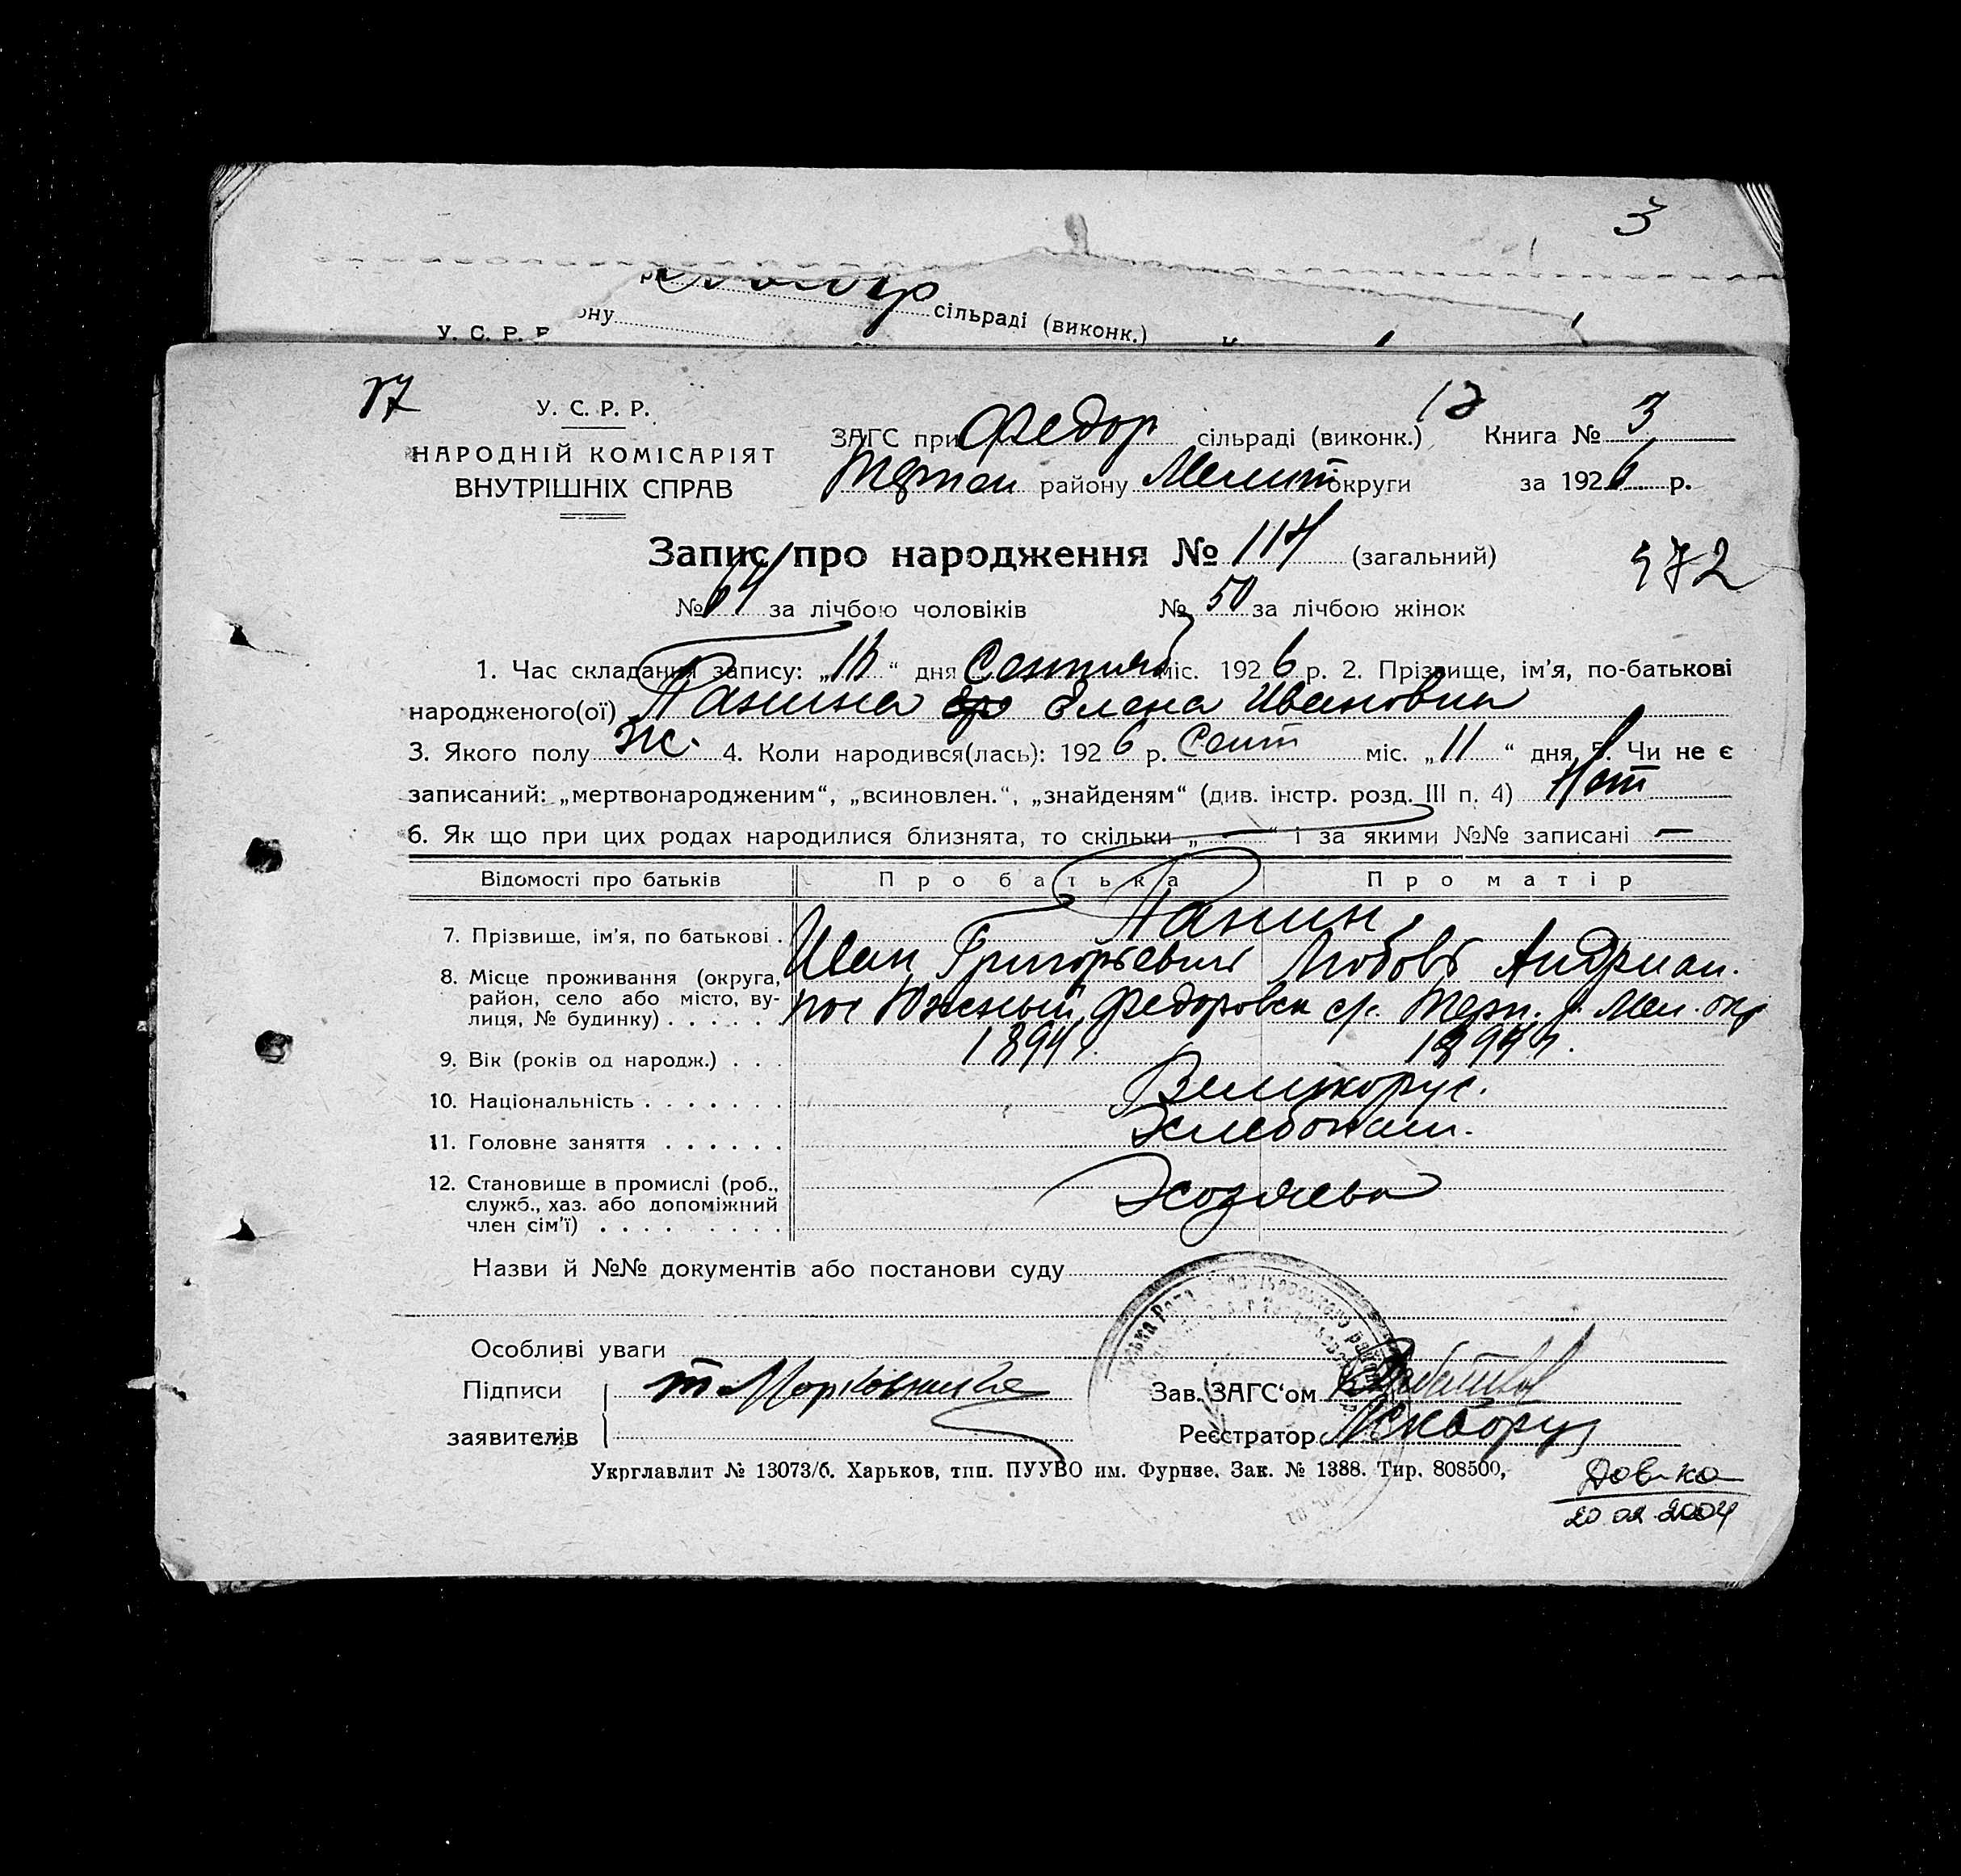 3
сільраді (виконк.)
ону
У. С. Р. Р
17
У. С. Р. Р.
НАРОДНІЙ КОМІСАРІЯТ
ВНУТРІШНІХ СПРАВ
ЗАГС при Федор сільраді (виконк.) Книга № 3
району Мелит округи за 1926 р.
Запис про народження № 114 (загальний)
572
№ 64 за лічбою чоловіків № 50 за лічбою жінок
1. Час складання запису: „16“ дня Сентяб міс. 1926 р. 2. Прізвище, ім'я, по-батькові
народженого(ої) Панина Елена Ивановна
3. Якого полу Ж. 4. Коли народився(лась): 1926 р. Сент міс. „11“ дня 5. Чи не є
записаний: „мертвонародженим“, „всиновлен.“, „знайденям“ (див. інстр. розд. III п. 4) Нет
6. Як що при цих родах народилися близнята, то скільки „—“ і за якими №№ записані —
Відомості про батьків Про батька Про матір
Панин
7. Прізвище, ім'я, по батькові . Иван Григорьевич Любовь Андриан.
8. Місце проживання (округа,
район, село або місто, ву-
лиця, № будинку) . . . . . пос Южный, Федоровск с/р. Терп. р. Мел. окр
9. Вік (років од народж.) . . . 1894 г. 1894 г.
10. Національність . . . . . . . Великорус.
11. Головне заняття . . . . . . Хлебопаш.
12. Становище в промислі (роб.,
служб., хаз. або допоміжний
член сім'ї) . . . . . . . . . Хозяева
Назви й №№ документів або постанови суду
Особливі уваги
Підписи
заявителів
Зав. ЗАГС'ом
Реєстратор
Укрглавлит № 13073/б. Харьков, тип. ПУУВО им. Фурнзе. Зак. № 1388. Тир. 808500,
Дов-ка
20.02.2004